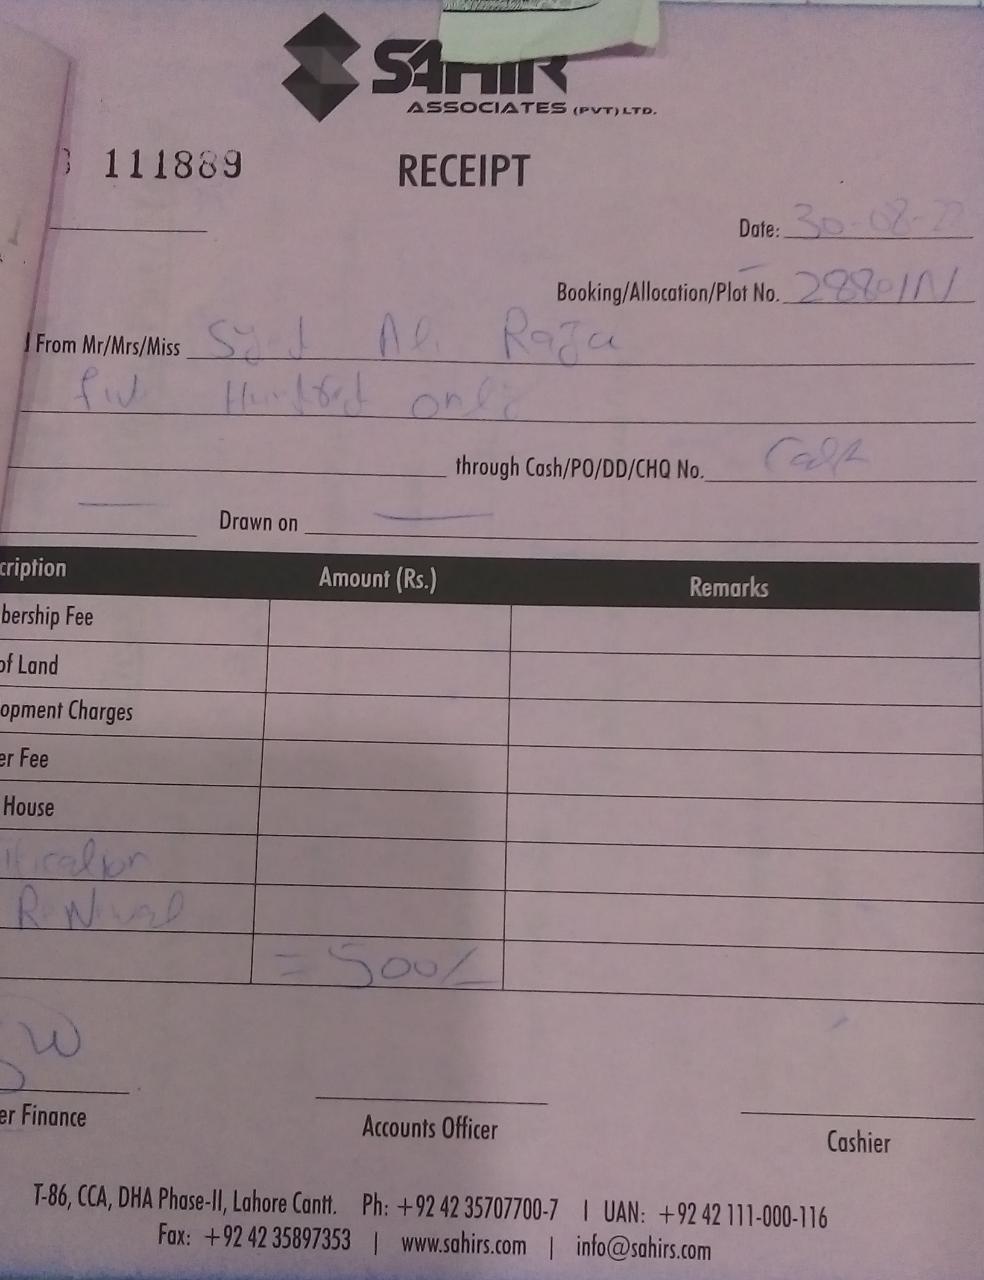 SAHIR
ASSOCIATES (PVT) LTD.
111889
RECEIPT
Date: 30-08-22
Booking/Allocation/Plot No. 2880/N
From Mr/Mrs/Miss Syed Ali Raza
Five Hundred only
through Cash/PO/DD/CHQ No. Cash
Drawn on
cription Amount (Rs.) Remarks
bership Fee
of Land
opment Charges
er Fee
House
ification
ReNewal
= 500/-
er Finance
Accounts Officer
Cashier
T-86, CCA, DHA Phase-II, Lahore Cantt. Ph: +92 42 35707700-7 | UAN: +92 42 111-000-116
Fax: +92 42 35897353 | www.sahirs.com | info@sahirs.com